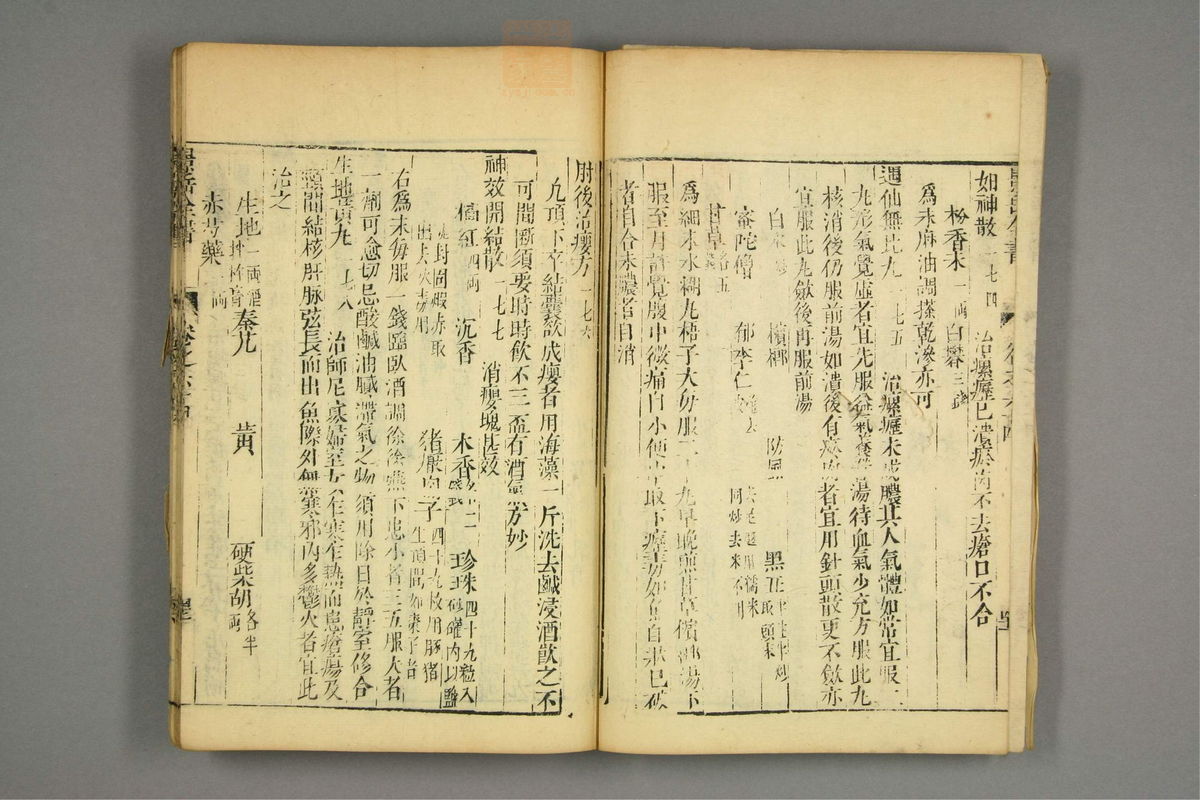 如神散 一七四 治瘰癧已潰瘀肉不去瘡口不合
松香末 一兩 白礬 三錢
為末麻油調搽乾滲亦可
遇仙無比丸 七五 治瘰癧未成膿其人氣體如常宜服
丸形氣覺虛者宜先服益氣養榮湯待血氣少充方服此丸
核消後仍服前湯如潰後有瘀肉者宜用針頭散更不斂亦
宜服此丸斂後再服前湯
白朮 檳榔 防風 黑丑 半生半炒取頭末
蜜陀僧 郁李仁 斑蝥 去翅足用糯米同炒去米不用
甘草 各五
為細末水糊丸梧子大每服二十丸早晚煎甘草檳榔湯下
服至月許覺腹中微痛自小便中取下癧毒如魚目狀已破
者自合未膿者自消
肘後治癭方 一七六
九項下卒結囊欲成癭者用海藻一斤洗去鹹浸酒飲之不
可間斷須要時時飲不三盃有酒氣方妙
神效開結散 一七七 消癭塊甚效
橘紅 四兩 沉香 木香 各二錢 珍珠 四十九粒入砂罐內以鹽
泥封固煅赤取出去火毒用 猪靨肉子 四十九枚用豚猪生項間如棗子者
右為末每服一錢臨臥酒調徐徐嚥下患小者三五服大者
一劑可愈切忌酸鹹油膩滯氣之物須用除日於靜室修合
生地黃丸 一七八 治師尼寡婦室女乍寒乍熱而患瘡瘍及
頸間結核肝脉弦長而出魚際外無寒邪內多鬱火者宜此
治之
生地 一兩酒拌杵膏 秦艽 黄 硬柴胡 各半兩
赤芍藥 兩